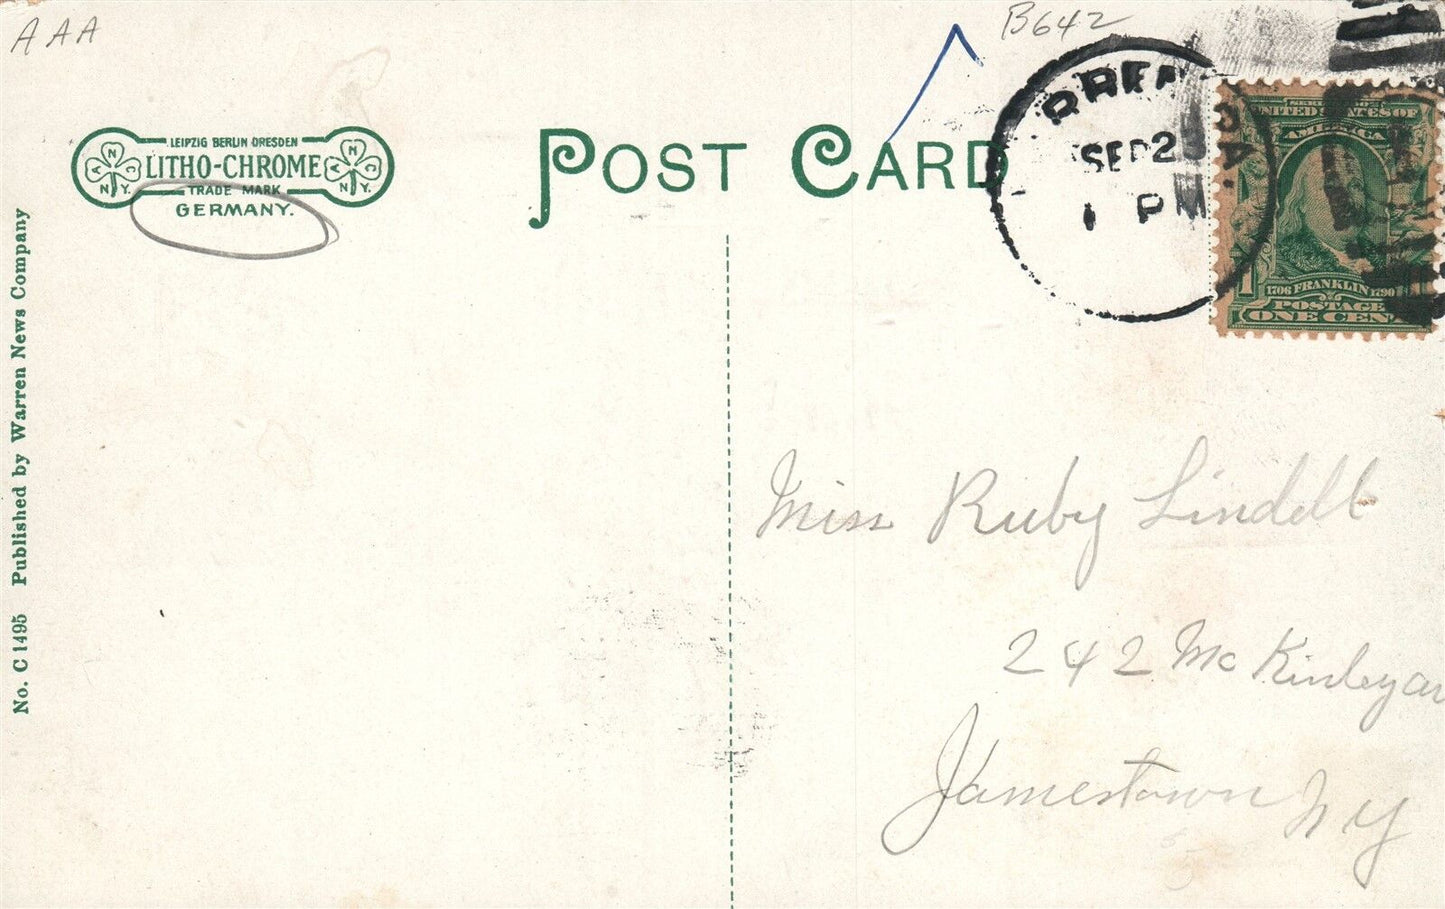 AAA
B642
LEIPZIG BERLIN DRESDEN
LITHO-CHROME
TRADE MARK
GERMANY.
N
A C
N.Y.
N
A C
N.Y.
POST CARD
SEP 2
1 PM
PA.
SERIES 1902
UNITED STATES OF
AMERICA
1706 FRANKLIN 1790
POSTAGE
ONE CENT
1
No. C 1495 Published by Warren News Company
Miss Ruby Lindell
242 McKinley av
Jamestown
N Y